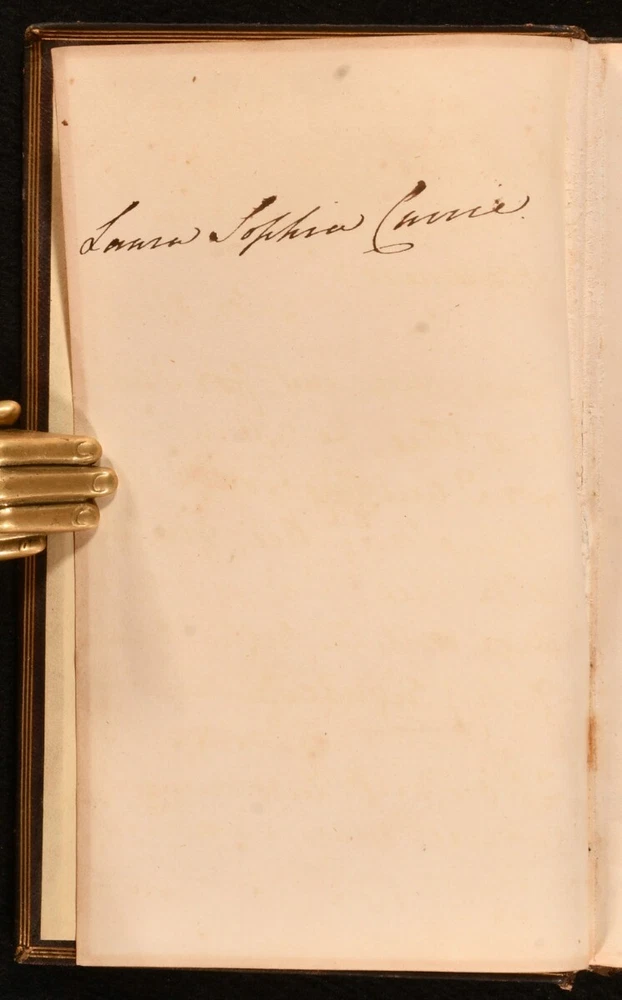 Laura Sophia Currie.